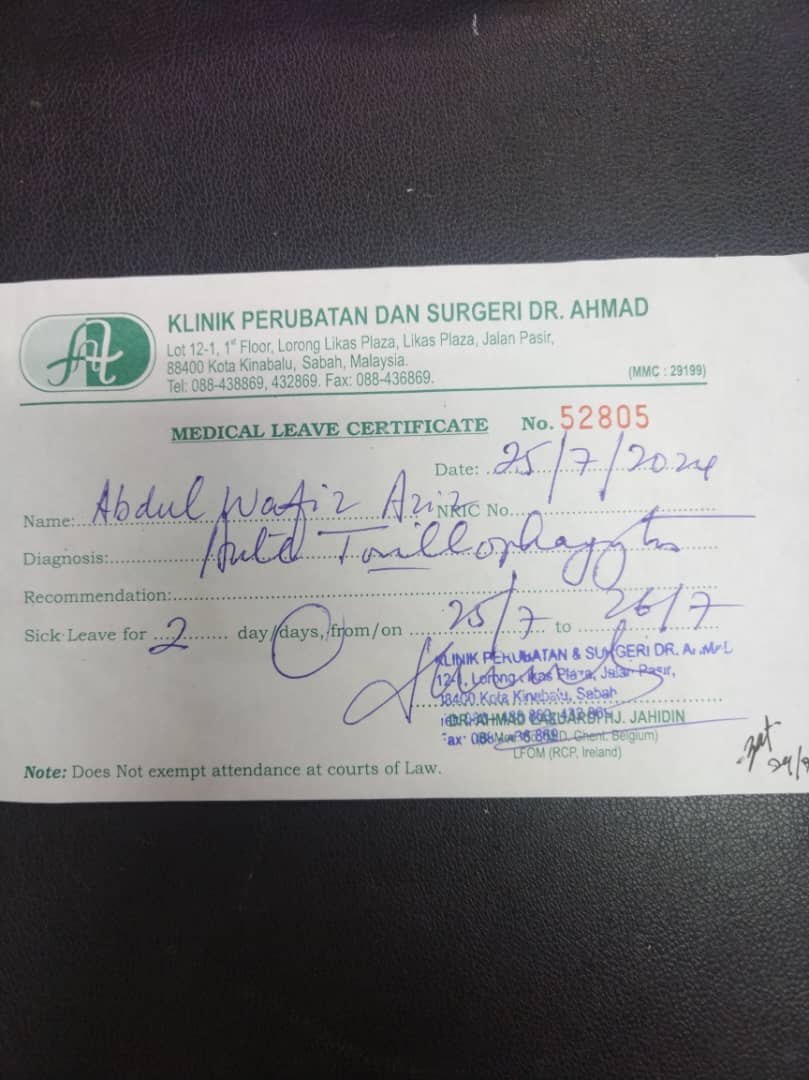 KLINIK PERUBATAN DAN SURGERI DR. AHMAD
Lot 12-1, 1st Floor, Lorong Likas Plaza, Likas Plaza, Jalan Pasir,
88400 Kota Kinabalu, Sabah, Malaysia.
Tel: 088-438869, 432869. Fax: 088-436869.
(MMC : 29199)
MEDICAL LEAVE CERTIFICATE No. 52805
Date: 25/7/2024
Name: Abdul Wafiz Aziz NRIC No.
Diagnosis:
Recommendation:
Sick Leave for 2 day/days, from/on 25/7 to 26/7
KLINIK PERUBATAN & SURGERI DR.
12-1, Lorong Likas Plaza, Jalan Pasir,
88400 Kota Kinabalu, Sabah
DR. AHMAD HJ. JAHIDIN
Ghent. Belgium)
LFOM (RCP, Ireland)
Note: Does Not exempt attendance at courts of Law.